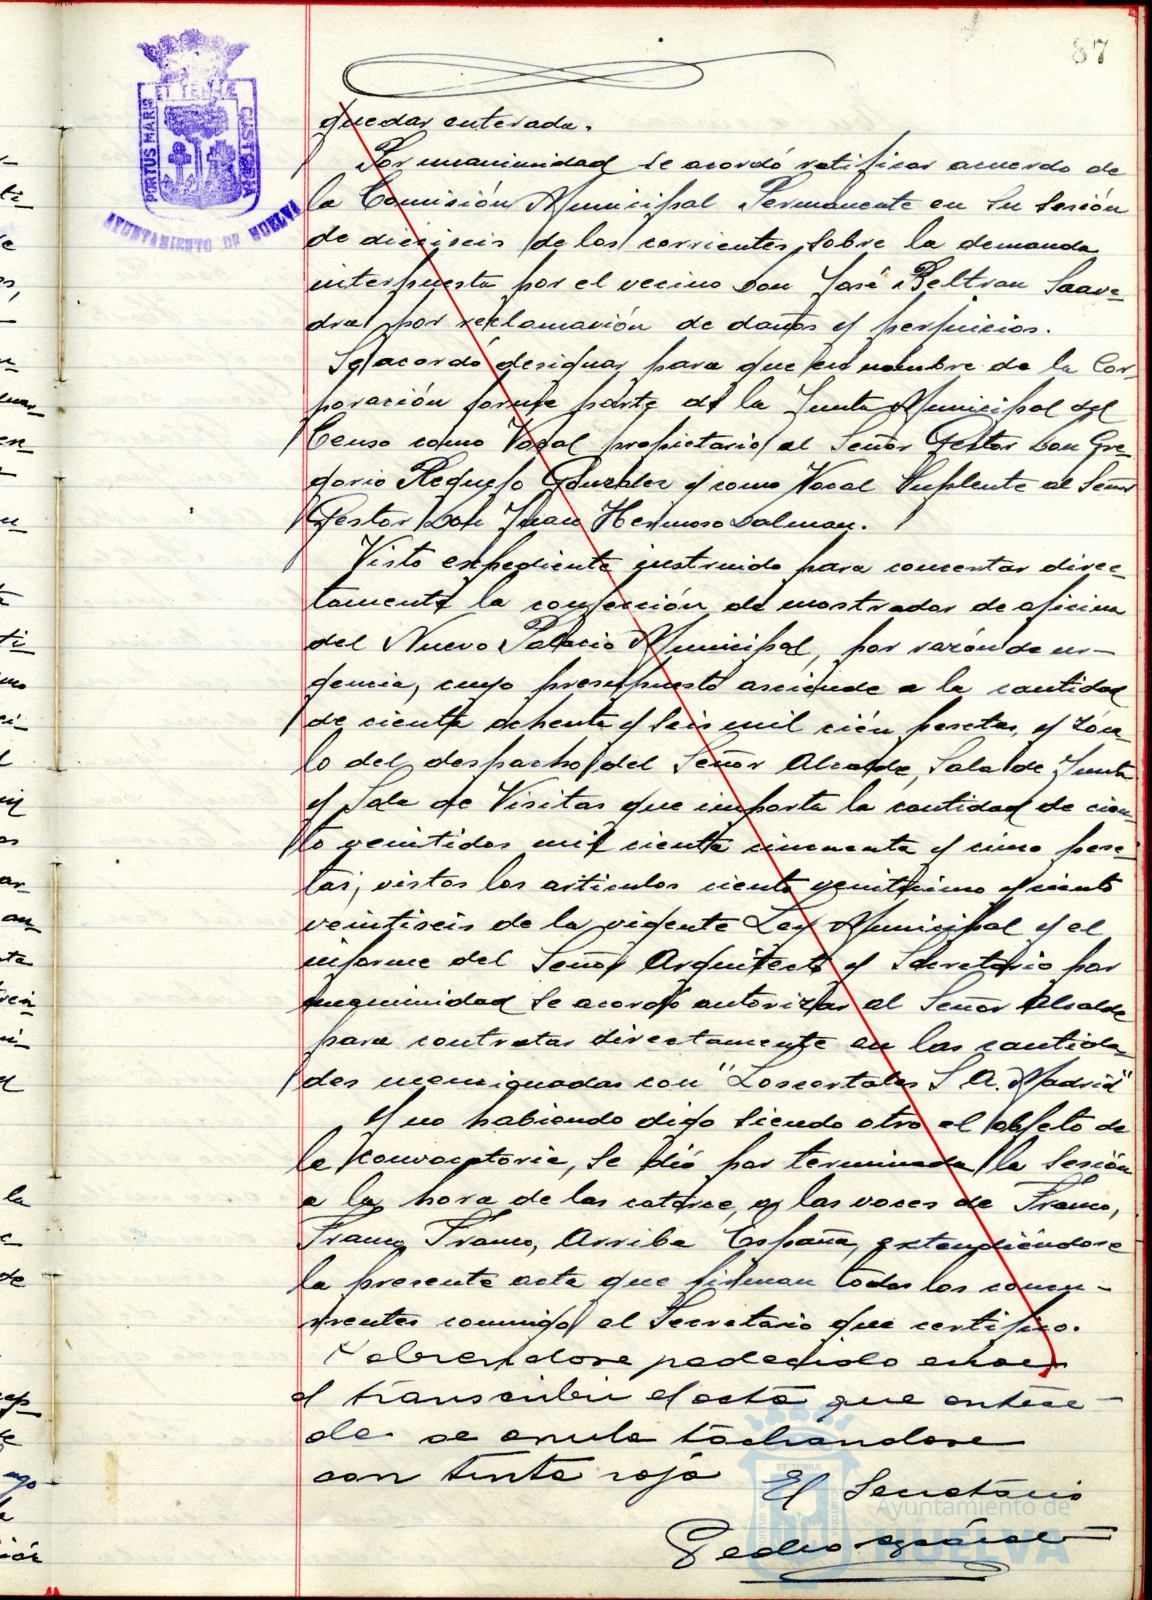 87
PORTUS MARIS ET TERRÆ CUSTODIA
AYUNTAMIENTO DE HUELVA
quedar enterada.
Por unanimidad se acordó ratificar acuerdo de
la Comisión Municipal Permanente en su sesión
de dieciseis de los corrientes, sobre la demanda
interpuesta por el vecino Don José Beltran Saave-
dra, por reclamación de daños y perjuicios.
Se acordó designar para que en nombre de la Cor-
poración forme parte de la Junta Municipal del
Censo como Vocal propietario al Señor Gestor Don Gre-
gorio Requejo Gonzalez y como Vocal Suplente al Señor
Gestor Don Juan Hermoso Dalman.
Visto expediente instruido para concertar direc-
tamente la confección de mostrador de oficina
del Nuevo Palacio Municipal, por razón de ur-
gencia, cuyo presupuesto asciende a la cantidad
de ciento ochenta y seis mil cién pesetas, y zóca-
lo del despacho del Señor Alcalde, Sala de Junta
y Sala de Visitas que importa la cantidad de cien-
to veintidos mil ciento cincuenta y cinco pese-
tas, vistos los articulos ciento veinticinco y ciento
veintiseis de la vigente Ley Municipal y el
informe del Señor Arquitecto y Secretario por
unanimidad se acordó autorizar al Señor Alcalde
para contratar directamente en las cantida-
des mencionadas con "Loscertales S. A. Madrid"
Y no habiendo digo siendo otro el objeto de
la convocatoria, se dió por terminada la sesión
a la hora de las catorce, a las voces de Franco,
Franco, Franco, Arriba España, extendiéndose
la presente acta que firman todos los concu-
rrentes conmigo el Secretario que certifico.
Habiendose padecido error
al transcribir el acta que antece-
de se anula tachandose
con tinta roja El Secretario
Pedro
Ayuntamiento de
HUELVA